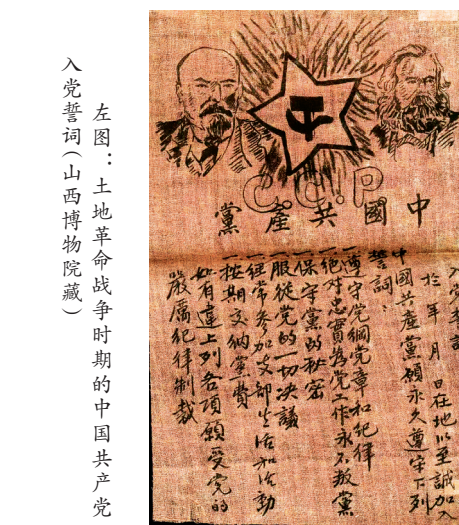 C.C.P
中國共產黨
於 年 月 日在地以至誠加入
中國共產黨願永久遵守下列
誓詞：
一遵守党綱党章和紀律
一絕对忠實為党工作永不叛黨
一保守黨的秘密
一服從党的一切决議
一經常參加支部生活和活動
一按期交納黨費
如有違上列各項願受党的
嚴厲紀律制裁
左图：土地革命战争时期的中国共产党
入党誓词（山西博物院藏）